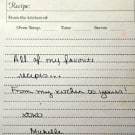 Recipe:
From the kitchen of:
Oven Temp: Time: Serves:
All of my favorite
recipes...
From my kitchen to yours!
xoxo
Michelle